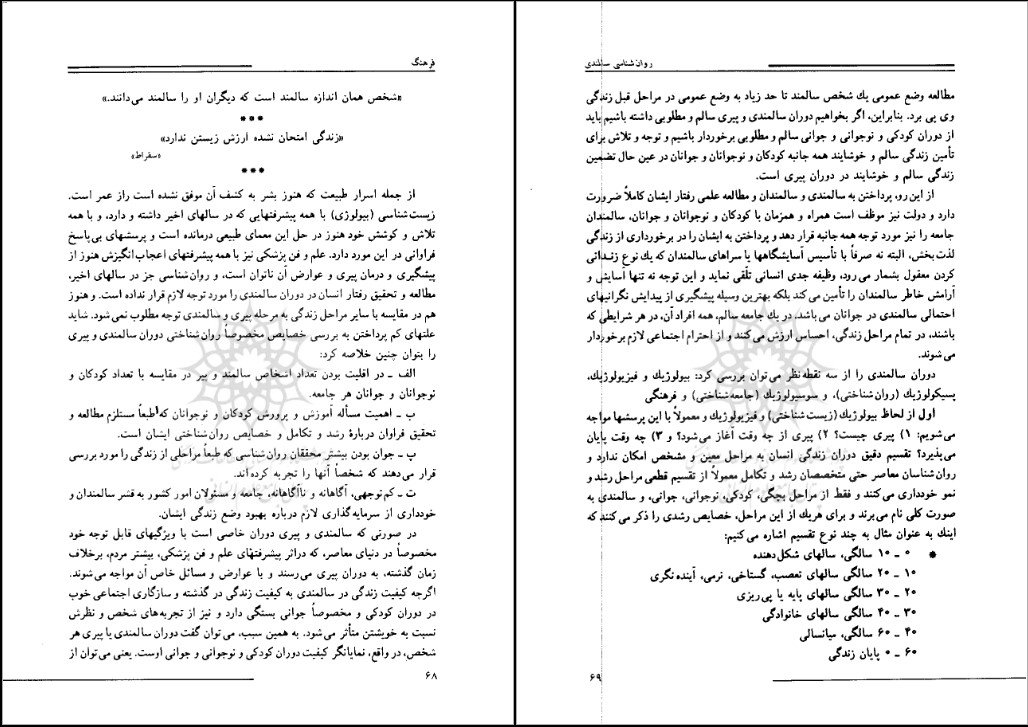 فرهنگ
«شخص همان اندازه سالمند است که دیگران او را سالمند می‌دانند.»
***
«زندگی امتحان نشده ارزش زیستن ندارد»
«سقراط»
***
از جمله اسرار طبیعت که هنوز بشر به کشف آن موفق نشده است راز عمر است.
زیست‌شناسی (بیولوژی) با همه پیشرفتهایی که در سالهای اخیر داشته و دارد، و با همه
تلاش و کوشش خود هنوز در حل این معمای طبیعی درمانده است و پرسشهای بی‌پاسخ
فراوانی در این مورد دارد. علم و فن پزشکی نیز با همه پیشرفتهای اعجاب‌انگیزش هنوز از
پیشگیری و درمان پیری و عوارض آن ناتوان است، و روان‌شناسی جز در سالهای اخیر،
مطالعه و تحقیق رفتار انسان در دوران سالمندی را مورد توجه لازم قرار نداده است. و هنوز
هم در مقایسه با سایر مراحل زندگی به مرحله پیری و سالمندی توجه مطلوب نمی‌شود. شاید
علتهای کم پرداختن به بررسی خصایص مخصوصاً روان‌شناختی دوران سالمندی و پیری
را بتوان چنین خلاصه کرد:
الف ـ در اقلیت بودن تعداد اشخاص سالمند و پیر در مقایسه با تعداد کودکان و
نوجوانان و جوانان هر جامعه.
ب ـ اهمیت مسأله آموزش و پرورش کودکان و نوجوانان که طبعاً مستلزم مطالعه و
تحقیق فراوان دربارهٔ رشد و تکامل و خصایص روان‌شناختی ایشان است.
پ ـ جوان بودن بیشتر محققان روان‌شناسی که طبعاً مراحلی از زندگی را مورد بررسی
قرار می‌دهند که شخصاً آنها را تجربه کرده‌اند.
ت ـ کم‌توجهی، آگاهانه و ناآگاهانه، جامعه و مسئولان امور کشور به قشر سالمندان و
خودداری از سرمایه‌گذاری لازم درباره بهبود وضع زندگی ایشان.
در صورتی که سالمندی و پیری دوران خاصی است با ویژگیهای قابل توجه خود
مخصوصاً در دنیای معاصر، که دراثر پیشرفتهای علم و فن پزشکی، بیشتر مردم، برخلاف
زمان گذشته، به دوران پیری می‌رسند و با عوارض و مسائل خاص آن مواجه می‌شوند.
اگرچه کیفیت زندگی در سالمندی به کیفیت زندگی در گذشته و سازگاری اجتماعی خوب
در دوران کودکی و مخصوصاً جوانی بستگی دارد و نیز از تجربه‌های شخص و نظرش
نسبت به خویشتن متأثر می‌شود. به همین سبب، می‌توان گفت دوران سالمندی یا پیری هر
شخص، در واقع، نمایانگر کیفیت دوران کودکی و نوجوانی و جوانی اوست. یعنی می‌توان از
۶۸
روان‌شناسی سالمندی
مطالعه وضع عمومی یك شخص سالمند تا حد زیاد به وضع عمومی در مراحل قبل زندگی
وی پی برد. بنابراین، اگر بخواهیم دوران سالمندی و پیری سالم و مطلوبی داشته باشیم باید
از دوران کودکی و نوجوانی و جوانی سالم و مطلوبی برخوردار باشیم و توجه و تلاش برای
تأمین زندگی سالم و خوشایند همه جانبه کودکان و نوجوانان و جوانان در عین حال تضمین
زندگی سالم و خوشایند در دوران پیری است.
از این رو، پرداختن به سالمندی و سالمندان و مطالعه علمی رفتار ایشان کاملاً ضرورت
دارد و دولت نیز موظف است همراه و همزمان با کودکان و نوجوانان و جوانان، سالمندان
جامعه را نیز مورد توجه همه جانبه قرار دهد و پرداختن به ایشان را در برخورداری از زندگی
لذت‌بخش، البته نه صرفاً با تأسیس آسایشگاهها یا سراهای سالمندان که یك نوع زندانی
کردن معقول بشمار می‌رود، وظیفه جدی انسانی تلقی نماید و این توجه نه تنها آسایش و
آرامش خاطر سالمندان را تأمین می‌کند بلکه بهترین وسیله پیشگیری از پیدایش نگرانیهای
احتمالی سالمندی در جوانان می‌باشد، در یك جامعه سالم، همه افراد آن، در هر شرایطی که
باشند، در تمام مراحل زندگی، احساس ارزش می‌کنند و از احترام اجتماعی لازم برخوردار
می‌شوند.
دوران سالمندی را از سه نقطه‌نظر می‌توان بررسی کرد: بیولوژیك و فیزیولوژیك،
پسیکولوژیك (روان‌شناختی)، و سوسیولوژیك (جامعه‌شناختی) و فرهنگی
اول از لحاظ بیولوژیك (زیست‌شناختی) و فیزیولوژیك و معمولاً با این پرسشها مواجه
می‌شویم: ۱) پیری چیست؟ ۲) پیری از چه وقت آغاز می‌شود؟ و ۳) چه وقت پایان
می‌پذیرد؟ تقسیم دقیق دوران زندگی انسان به مراحل معین و مشخص امکان ندارد و
روان‌شناسان معاصر حتی متخصصان رشد و تکامل معمولاً از تقسیم قطعی مراحل رشد و
نمو خودداری می‌کنند و فقط از مراحل بچگی، کودکی، نوجوانی، جوانی، و سالمندی به
صورت کلی نام می‌برند و برای هریك از این مراحل، خصایص رشدی را ذکر می‌کنند که
اینك به عنوان مثال به چند نوع تقسیم اشاره می‌کنیم:
* ۰ ـ ۱۰ سالگی، سالهای شکل‌دهنده
۱۰ ـ ۲۰ سالگی سالهای تعصب، گستاخی، نرمی، آینده‌نگری
۲۰ ـ ۳۰ سالگی سالهای پایه یا پی‌ریزی
۳۰ ـ ۴۰ سالگی سالهای خانوادگی
۴۰ ـ ۶۰ سالگی، میانسالی
۶۰ ـ ۰ پایان زندگی
۶۹